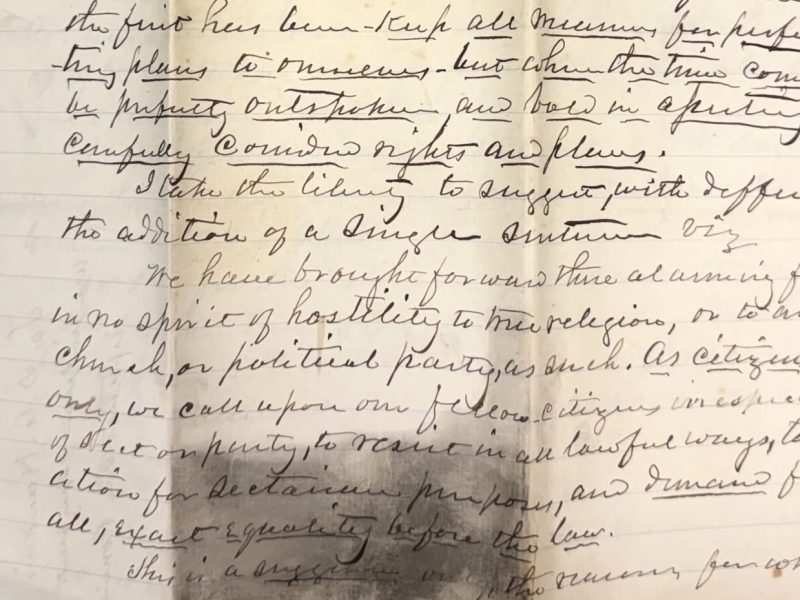 the first has been - Keep all measures for perfe
-ting plans to ourselves - but when the time com
be perfectly outspoken and bold in asserting
carefully considered rights and plans.
I take the liberty to suggest, with deffer
the addition of a single sentence viz
We have brought forward these alarming f
in no spirit of hostility to true religion, or to an
church, or political party, as such. As citizens
only, we call upon our fellow-citizens irrespec
of sect or party, to resist in all lawful ways, ta
ation for sectarian purposes, and demand f
all, exact equality before the law.
This is a suggestion the reasons for wh